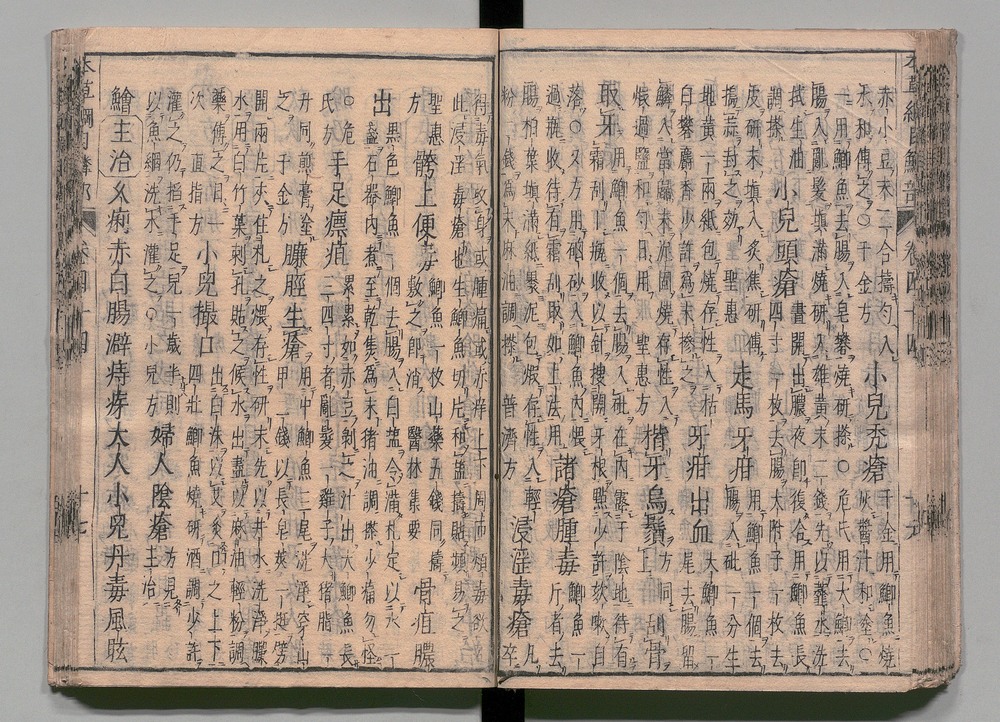 本草綱目鱗部
卷四十四
赤小豆末二合擣匀入
水和傅之○千金方
小兒禿瘡
千金用鯽魚燒
灰醬汁和塗○
一用鯽魚去腸入皂礬燒研搽○危氏用大鯽去
腸入亂髮填滿燒研入雄黃末二錢先以虀水洗
拭生油
調搽
小兒頭瘡
晝開出膿夜即復合用鯽魚長
四寸一枚去腸大附子一枚去
皮研末填入炙焦研末傅
搗蒜封之效 聖惠
走馬牙疳
用鯽魚一個去
腸入砒一分生
地黃一兩紙包燒存性入枯
白礬麝香少許為末摻之
牙疳出血
大鯽魚一
尾去腸留
鱗入當歸末泥固燒存性入
煅過鹽和匀日用
揩牙烏鬚
方同上
刮骨
取牙
用鯽魚一個去腸入砒在內露于陰地待有
霜刮下瓶收以針搜開牙根點少許欬嗽自
落○又方用硇砂入鯽魚內煨
過瓶收待有霜刮取如上法用
諸瘡腫毒
鯽魚一
斤者去
腸柏葉填滿紙裹泥包煅存性入輕
粉二錢為末麻油調搽 普濟方
浸淫毒瘡
凡卒
得毒氣攻身或腫痛或赤痒上下周匝煩毒欲
此浸淫毒瘡也生鯽魚切片和鹽擣貼頻易之
聖惠
方
䯊上便毒
鯽魚一枚山藥五錢同擣
敷之即消 醫林集要
骨疽膿
出
黑色鯽魚一個去腸入白鹽令滿扎定以水一
盞石器內煮至乾焦為末猪油調搽少痛勿怪
○危
氏方
手足瘭疽
累累如赤豆剝之汁出大鯽魚長
三四寸者亂髮一雞子大猪脂
升同煎膏塗
之 千金方
臁脛生瘡
用中鯽魚三尾洗淨穿山
甲一錢以長皂莢一挺劈
開兩片夾住扎之煨存性研末先以井水洗淨膿
水用白竹葉刺孔貼之候水出盡以麻油輕粉調
藥傅之日一
次 直指方
小兒撮口
出白沫以艾灸口之上下
四壯鯽魚燒研酒調少許
灌之仍掐手足兒一歲半則
以魚網洗水灌之○小兒方
婦人陰瘡
方見
主治
鱠主治久痢赤白腸澼痔疾大人小兒丹毒風眩
本草綱目鱗部
卷四十四
十七